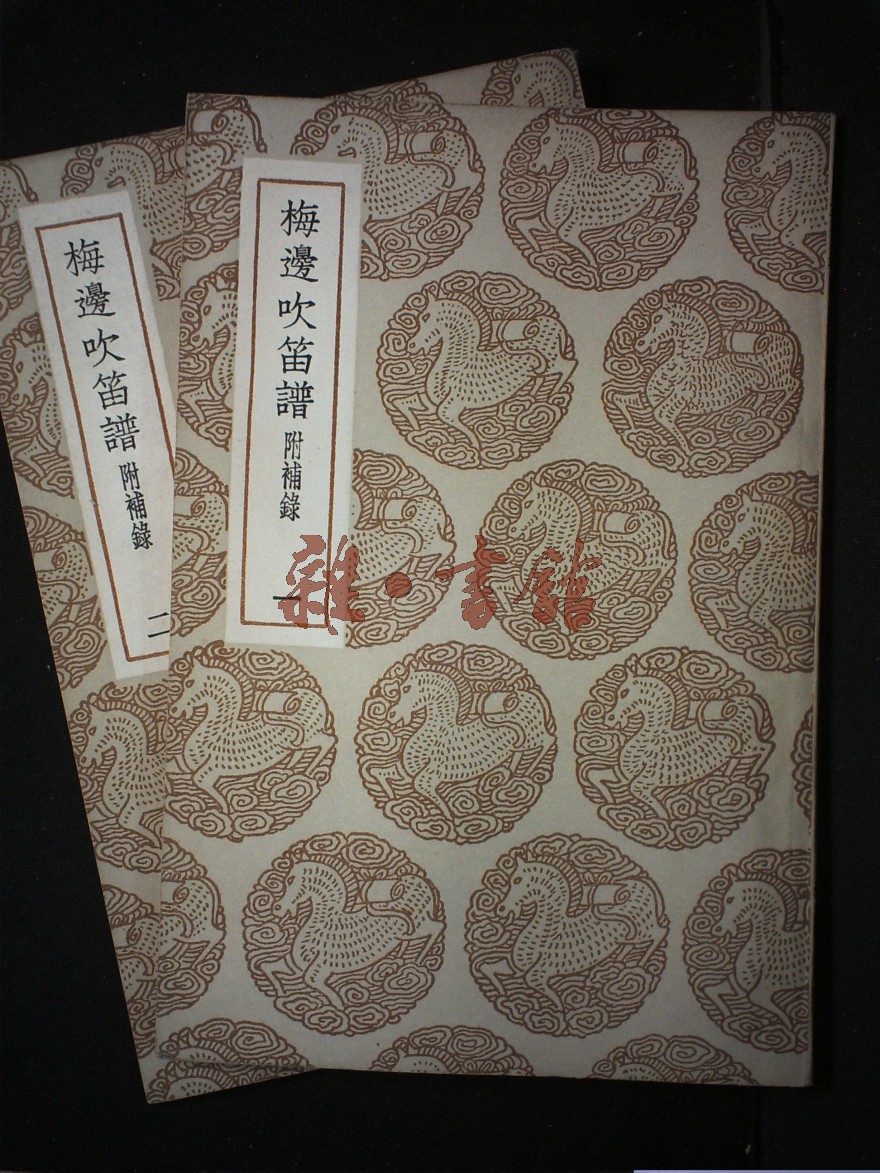 梅邊吹笛譜 附補錄 一
梅邊吹笛譜 附補錄 二
雜·書館